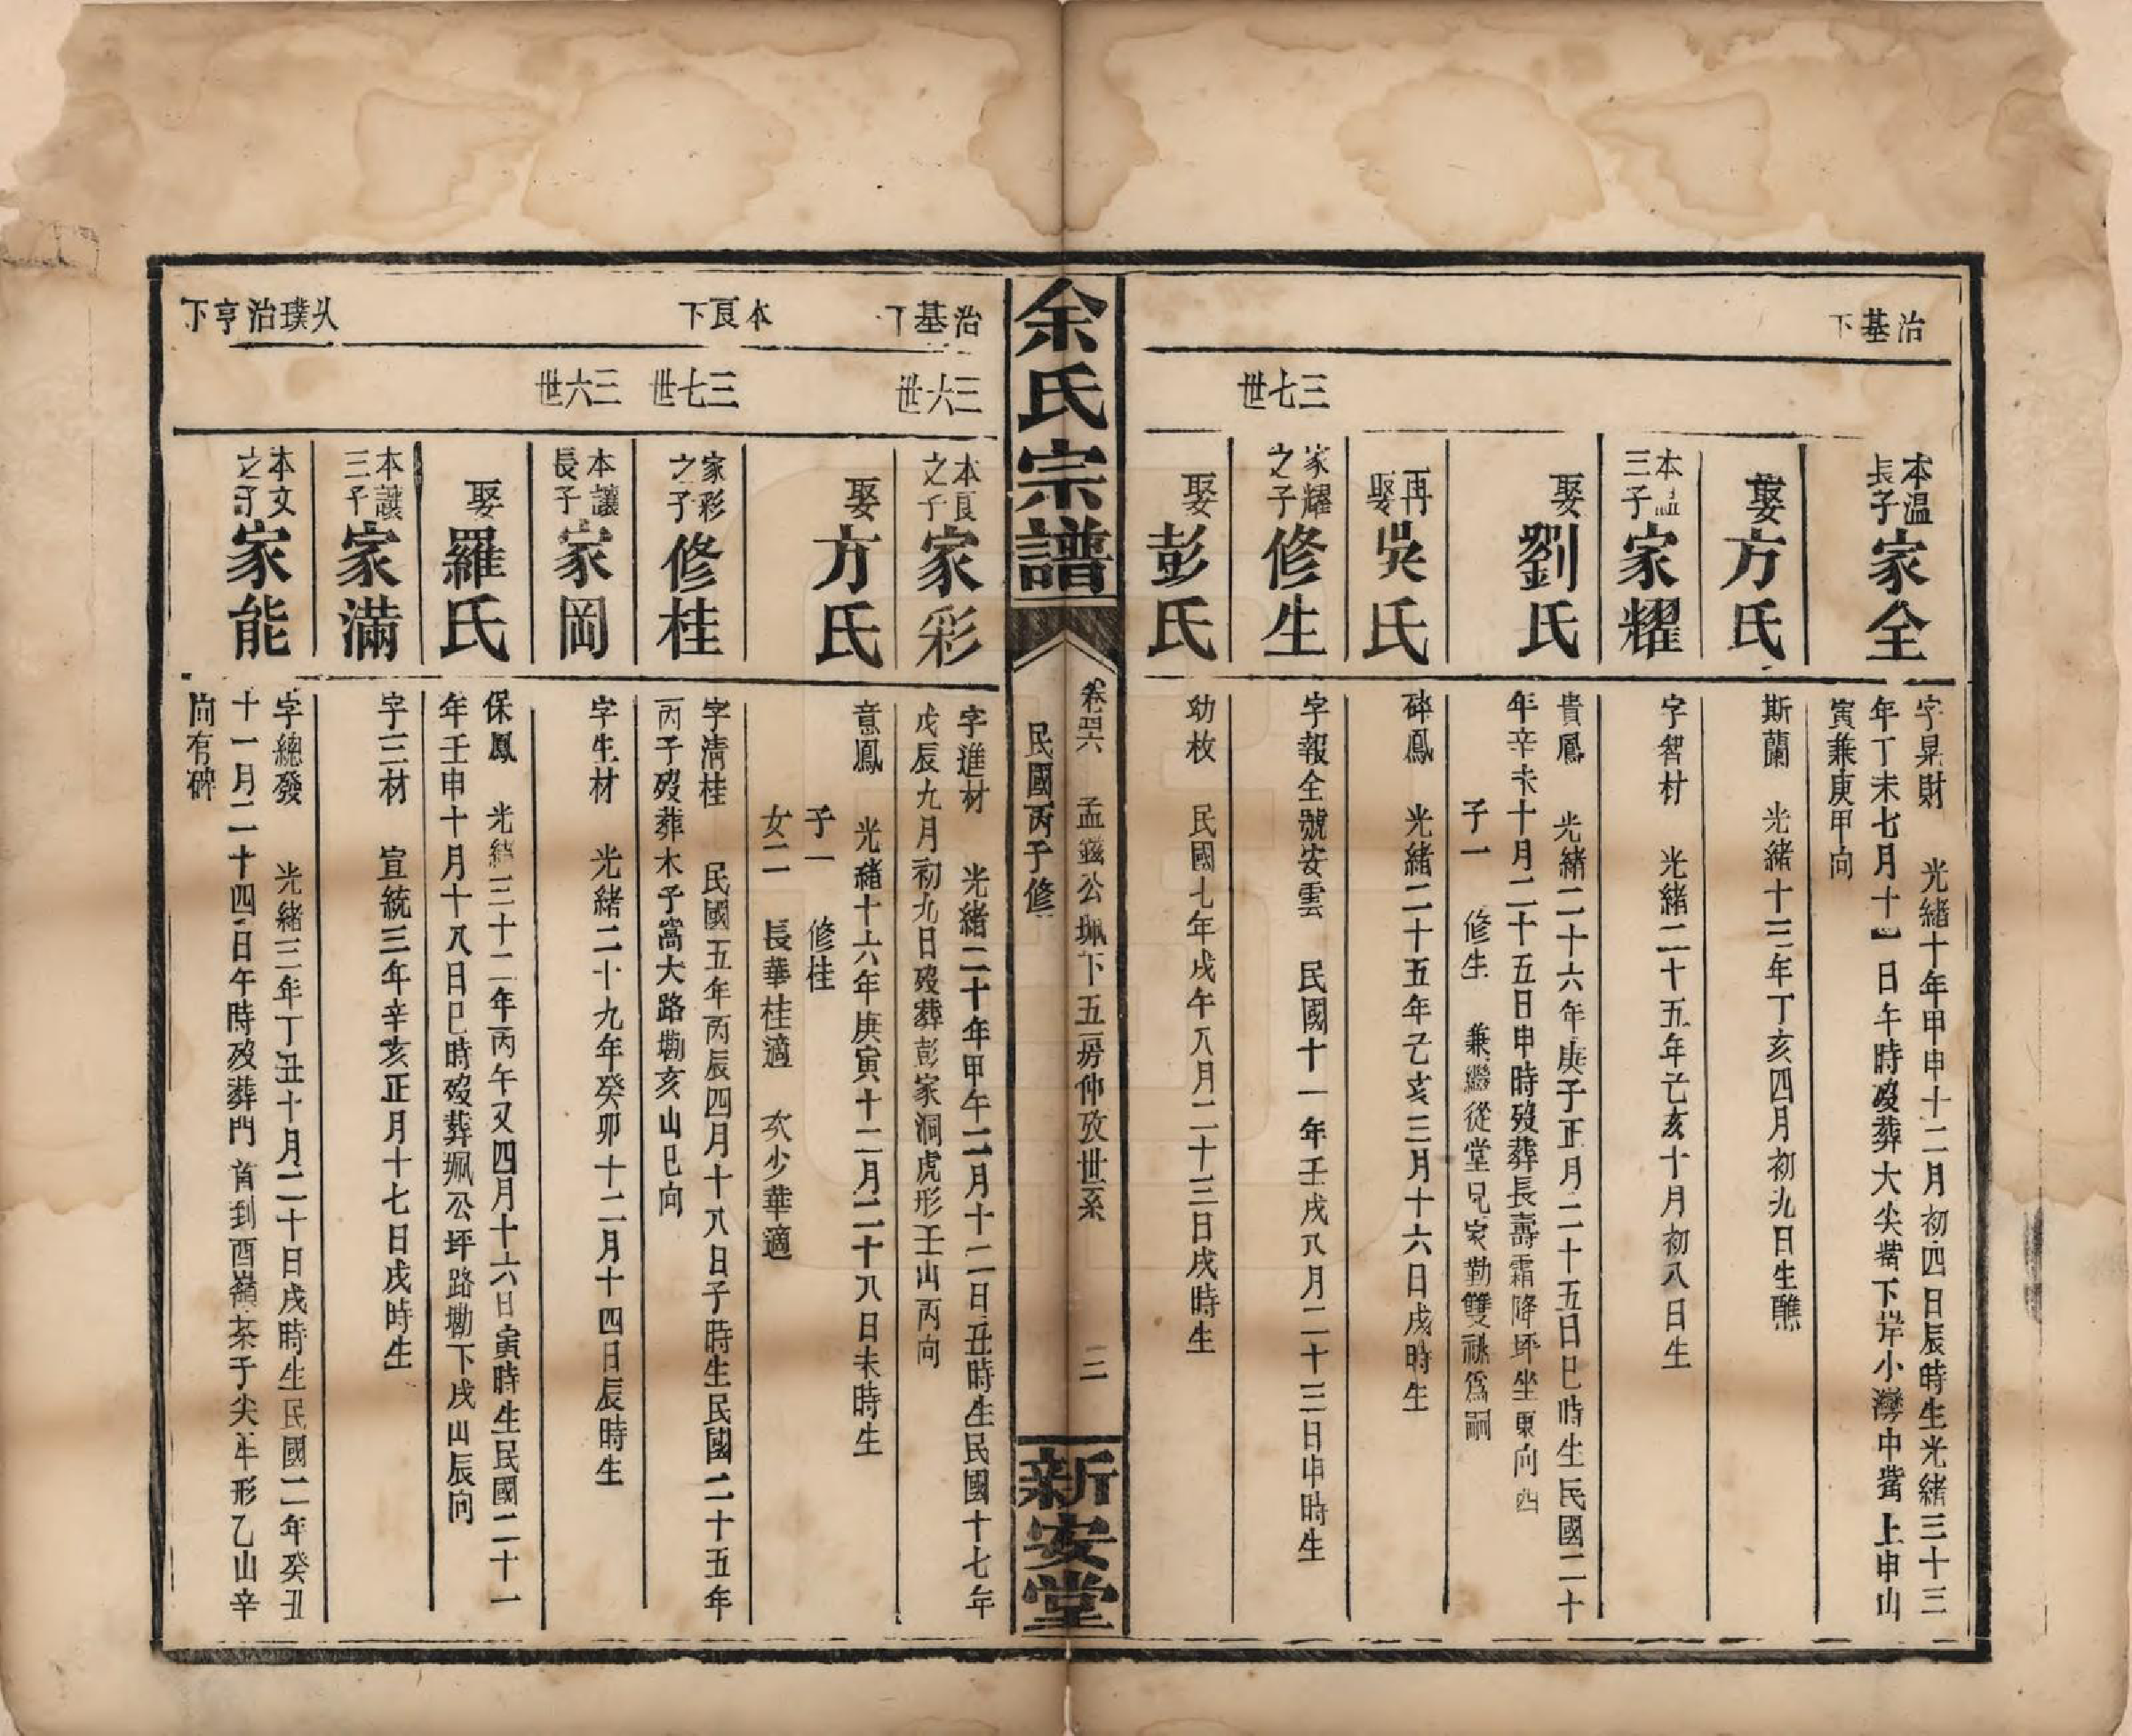 治基下
三七世
本溫長子家全
字晃財　光緒十年甲申十二月初四日辰時生光緒三十三
年丁未七月十一日午時歿葬大尖觜下岸小灣中觜上申山
寅兼庚甲向
娶方氏
斯蘭　光緒十三年丁亥四月初九日生醮
本溫三子家耀
字智材　光緒二十五年亡亥十月初八日生
娶劉氏
貴鳳　光緒二十六年庚子正月二十五日巳時生民國二十
年辛未十月二十五日申時歿葬長壽霜降坪坐東向西
子一　修生　兼繼從堂兄家勤雙祧爲嗣
再娶吳氏
碎鳳　光緒二十五年乙亥三月十六日戌時生
家耀之子修生
字報全號安雲　民國十一年壬戌八月二十三日申時生
娶彭氏
幼枚　民國七年戊午八月二十三日戌時生
余氏宗譜
卷六　孟 公珮下五房仲孜世系　三
民國丙子修
新安堂
治基下
三六世
本良之子家彩
字進材　光緒二十年甲午二月十二日丑時生民國十七年
戊辰九月初九日歿葬彭家洞虎形壬山丙向
娶方氏
意鳳　光緒十六年庚寅十二月二十八日未時生
子一　修桂
女二　長華桂適　次少華適
本良下
三七世
家彩之子修桂
字淸桂　民國五年丙辰四月十八日子時生民國二十五年
丙子歿葬木子窩大路塝亥山巳向
三六世
本讓長子家岡
字生材　光緒二十九年癸卯十二月十四日辰時生
娶羅氏
保鳳　光緒三十二年丙午又四月十六日寅時生民國二十一
年壬申十月十八日巳時歿葬珮公坪路塝下戌山辰向
本讓三子家滿
字三材　宣統三年辛亥正月十七日戌時生
從璞治亨下
本文之子家能
字總發　光緒三年丁丑十月二十日戌時生民國二年癸丑
十一月二十四日午時歿葬門首到酉嶺茶子尖羊形乙山辛
向有碑